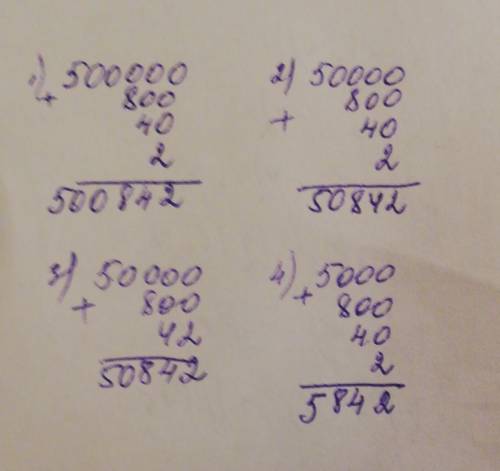 1) 500000
+ 800
40
2
500842
2) 50000
800
+ 40
2
50842
3) 50000
+ 800
42
50842
4) 5000
+ 800
40
2
5842